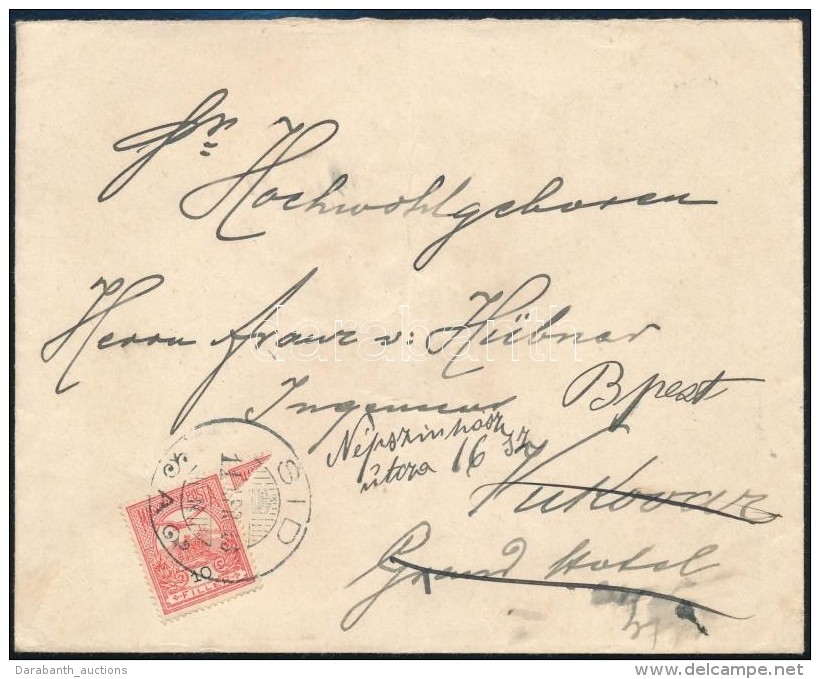 Sr
Hochwohlgeboren
Herrn Franz v: Hübner
Ingenieur Bpest
Népszinház
útcza 16 sz
Vukovar
Grand Hotel
darabanth
SID
10
FILL
Darabanth_auctions
www.delcampe.net